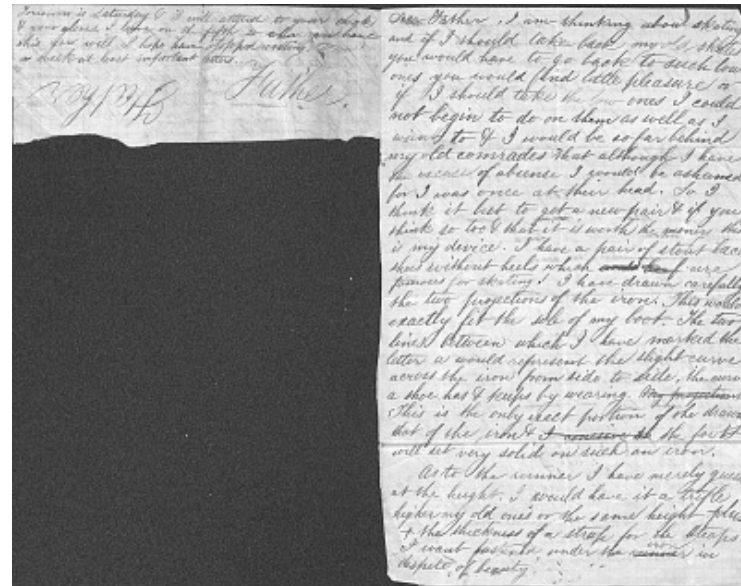 Tomorrow is Saturday & I will attend to your
& your I leave on the fifth so when you have
this you will I hope have stopped writing
or sent at least important letters.
Father
Father.
Dear Father. I am thinking about skating
and if I should take back my skates
you would have to go back to such low
ones you would find little pleasure or
if I should take the low ones I could
not begin to do on them as well as I
want to & I would be so far behind
my old comrades that although I have
the excuse of absence I would be ashamed
for I was once at their head. So I
think it best to get a new pair & if you
think so too & that it is worth the money this
is my device. I have a pair of stout lace
shoes without heels which are
famous for skating! I have drawn carefully
the two projections of the iron. This would
exactly fit the sole of my boot. The two
lines between which I have marked the
letter a would represent the slight curve
across the iron from side to side, the curve
a shoe has & keeps by wearing. My projection
This is the only exact portion of the draw
that of the iron & I conceive the foot
will set very solid on such an iron.
As to the runner I have merely guessed
at the height. I would have it a trifle
higher my old ones or the same height plus
+ the thickness of a strap for the straps
I want passed under the iron in
despite of beauty.